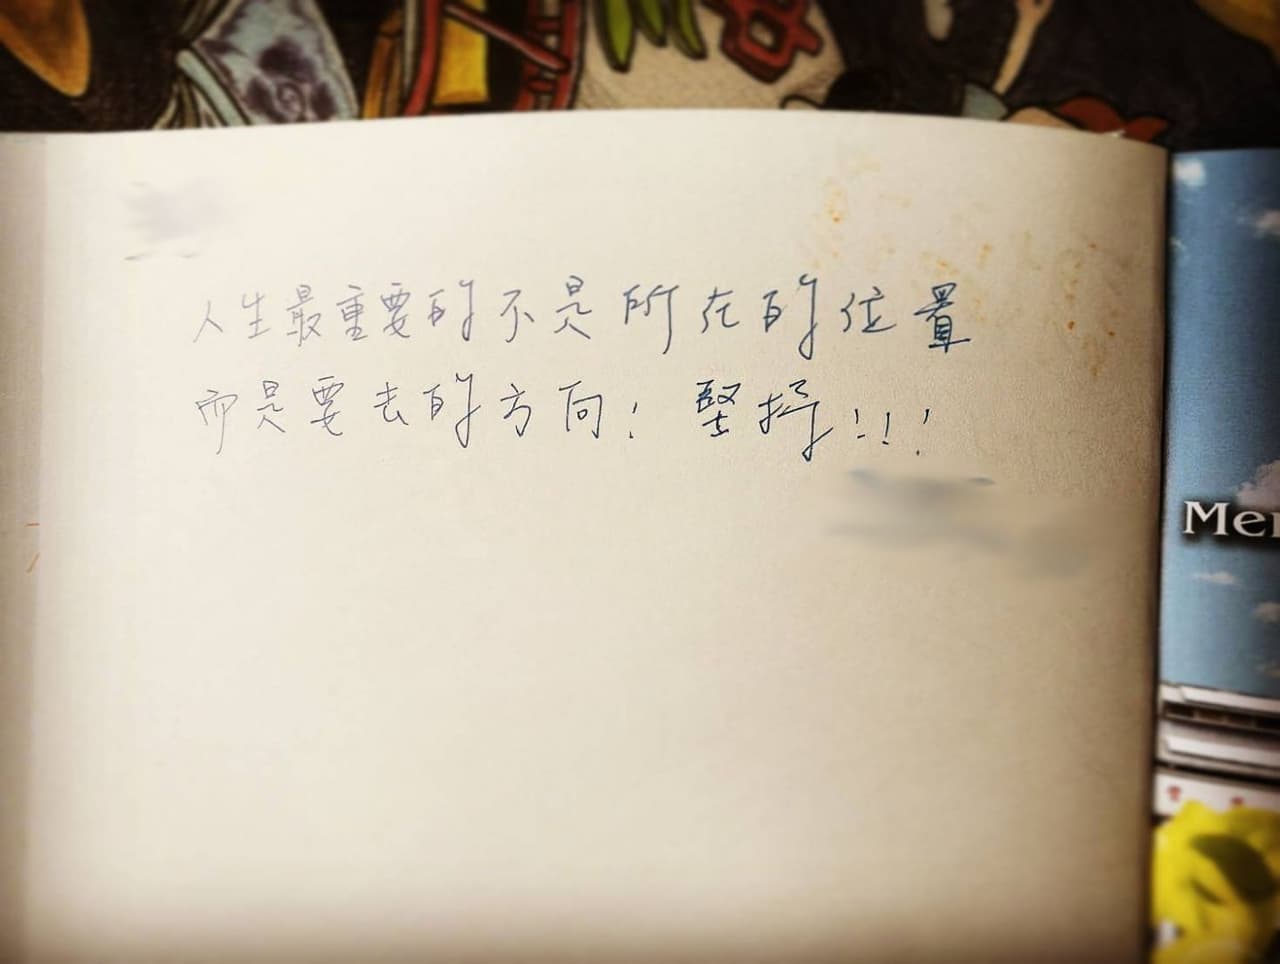 人生最重要的不是所在的位置
而是要去的方向! 堅持!!!
Mer